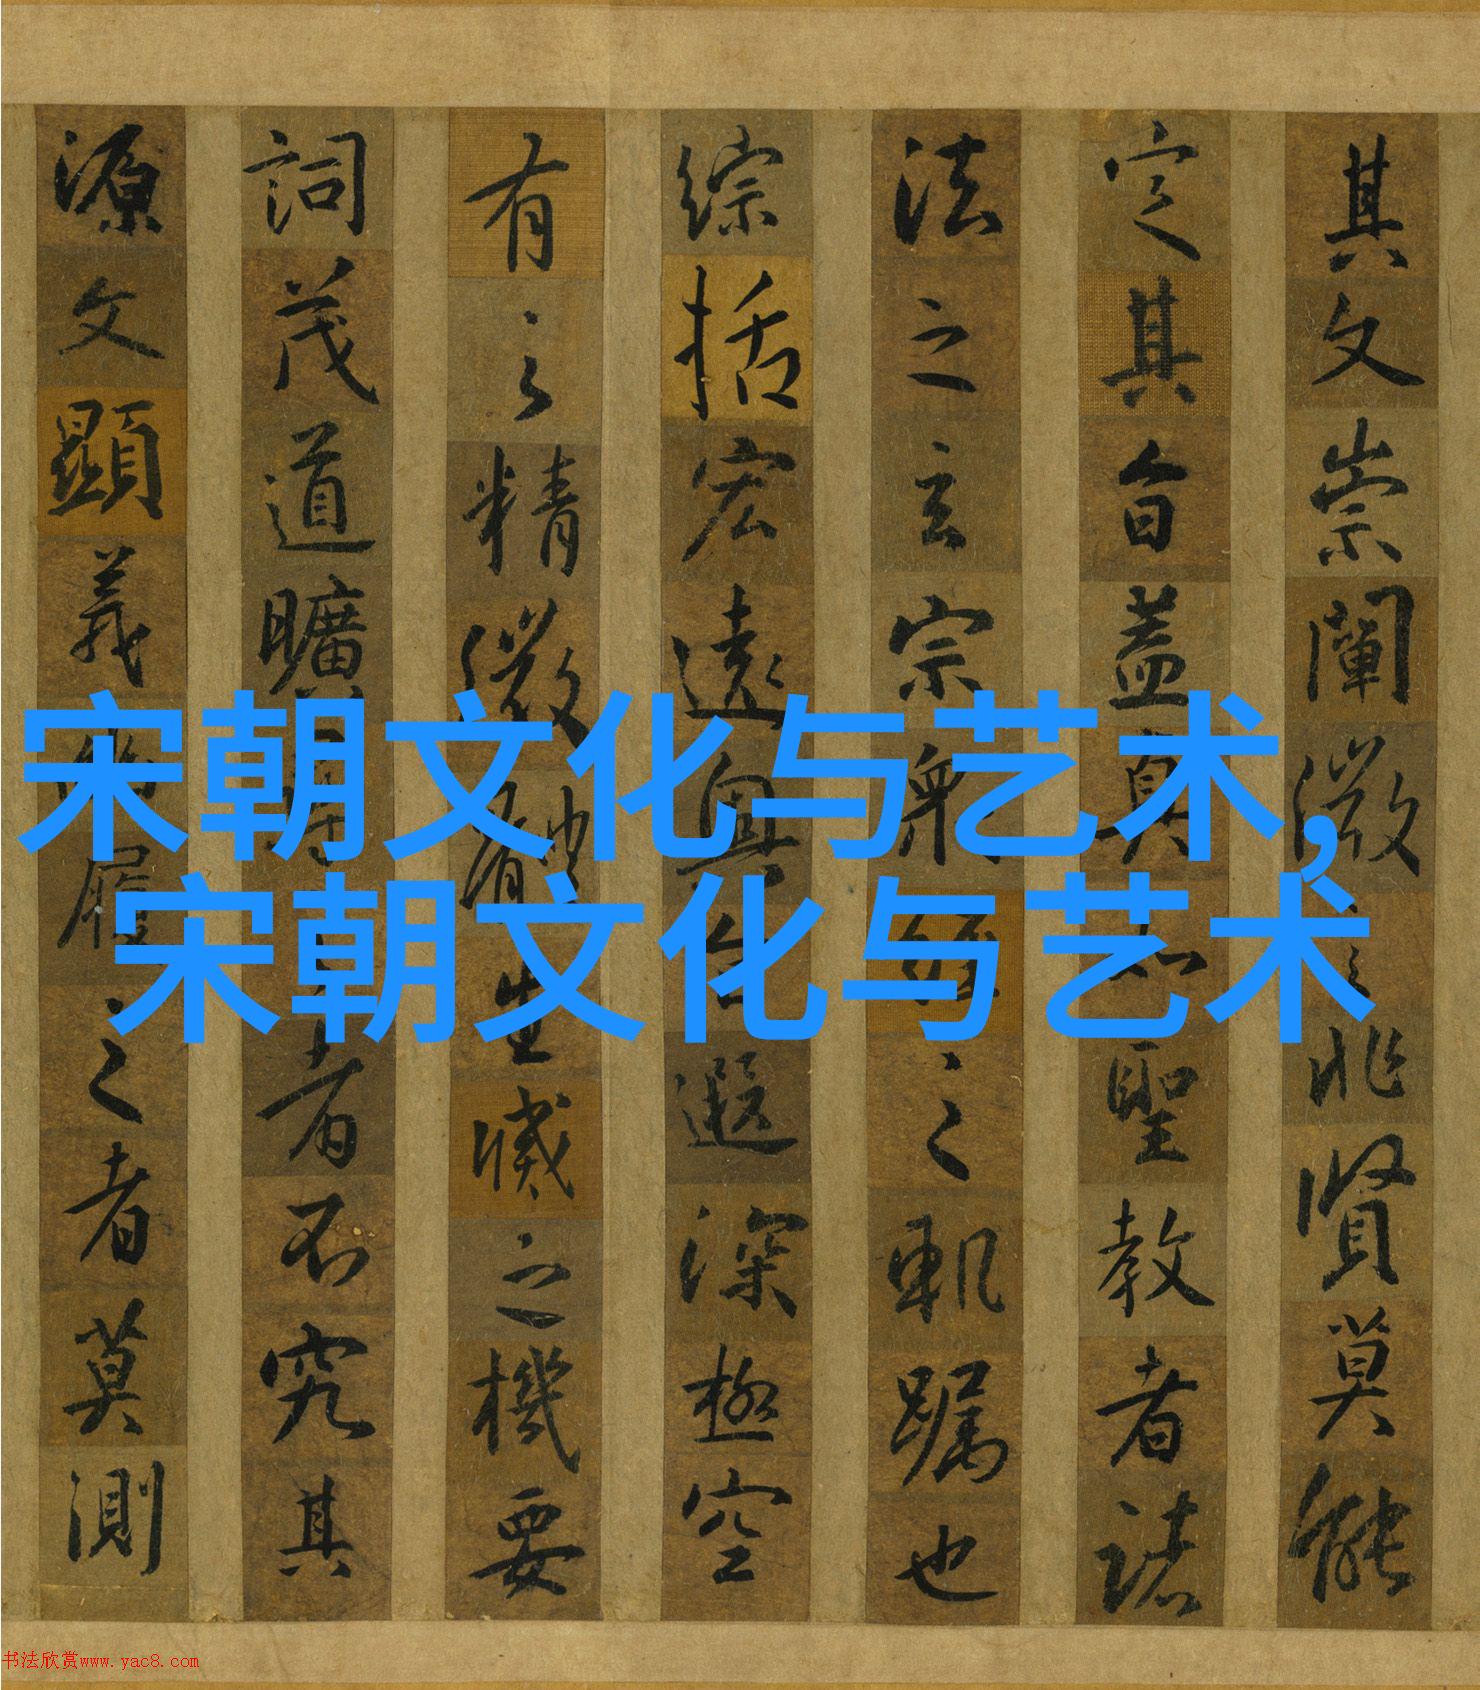 其文崇闡微言非賢莫能
定其旨蓋真如聖教者諸
法之玄宗衆經之軌躅也
綜括宏遠奧旨遐深極空
有之精微體生滅之機要
詞茂道曠尋之者不究其
源文顯義幽履之者莫測
宋朝文化与艺术,
宋朝文化与艺术
书法欣赏www.yac8.com